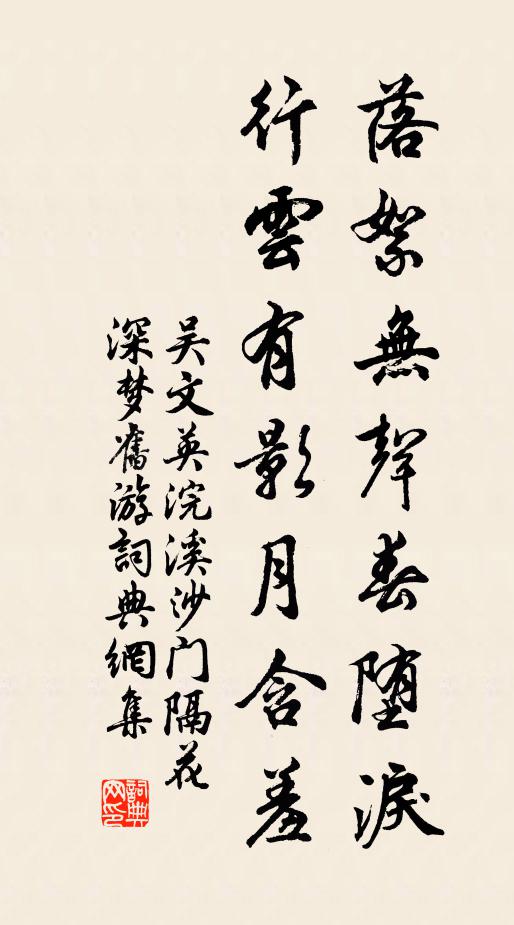 落絮無聲春堕淚
行雲有影月含羞
吴文英浣溪沙门隔花
深梦舊游詞典網集
詞典网印